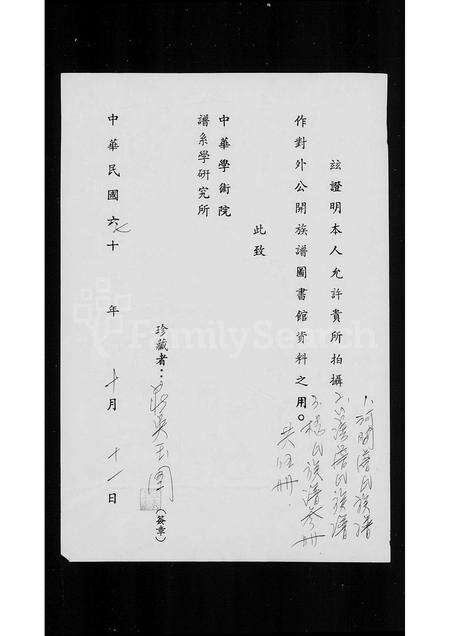 茲證明本人允許貴所拍攝
1.河間詹氏族譜
2.
詹氏族譜
3.
氏族譜
冊
作對外公開族譜圖書館資料之用。
共
冊
此致
中華學術院
譜系學研究所
珍藏者：
吳玉
(簽章)
中華民國六十七年十月十一日
FamilySearch